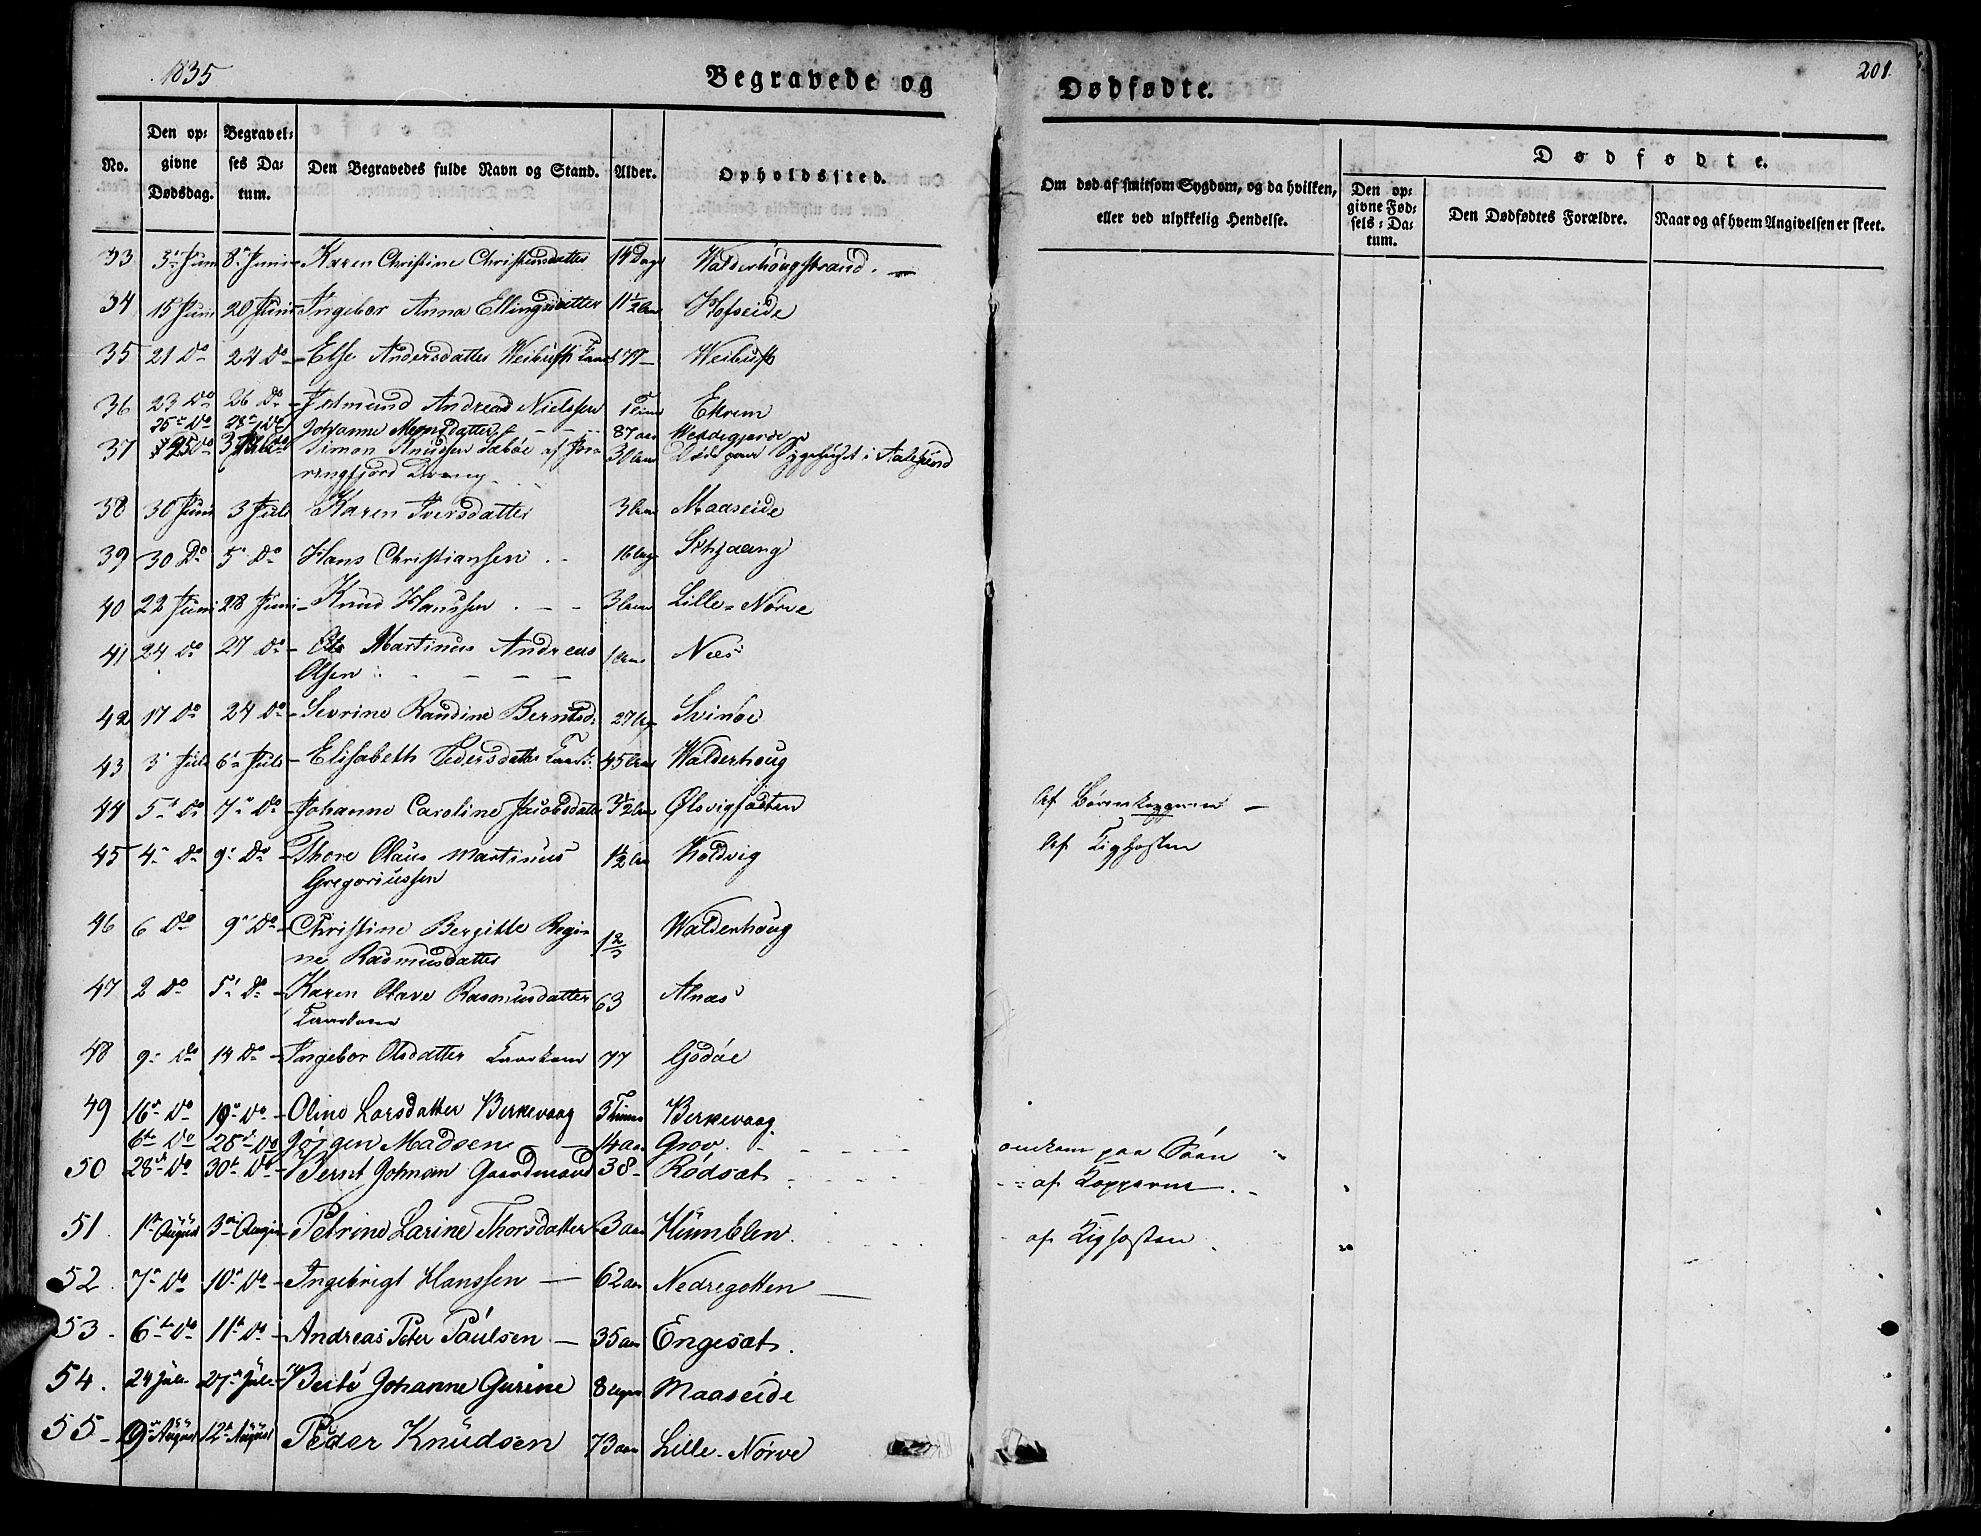 1835 Begravede og Dødfødte. 201.
No. Den opgivne Dødsdag. Begravelses Datum. Den Begravedes fulde Navn og Stand. Alder. Opholdssted. Om død af smitsom Sygdom, og da hvilken, eller ved ulykkelig Hendelse. Dødfødte.
Den opgivne Fødsels-Datum. Den Dødfødtes Forældre. Naar og af hvem Angivelsen er skeet.
33 3 Juni 8 Juni Karen Christine Christensdatter 14 Dage Walderhougstrand.
34 15 Juni 20 Juni Ingebor Anna Ellingsdatter 11 1/2 Hofseide
35 21 Do 24 Do Else Andersdatter Weibust Weibust
36 23 Do 26 Do Edmund Andreas Nielssen 1 Time Ekrem
25 Do 28 Do Johanne Mognsdatter 87 aar
37 Simon Knudsen Sæbøe af Jør-
ringfjord Dreng 3 Døde paa Sygehuset i Aalesund
38 30 Juni 3 Juli Karen Iversdatter 3 Maaseide
39 30 Do 5 Do Hans Christiansen 16 Skjaang
40 22 Juni 28 Juni Knud Hanssen 3 Lille-Nørve
41 24 Do 27 Do Ole Martinus Andreas
Olsen 1 Næs
42 17 Do 24 Do Sevrine Randine Berntsd: 27 Svinøe
43 3 Juli 6 Juli Elisabeth Pedersdatter 45 Walderhoug
44 5 Do 7 Do Johanne Caroline Jacobsdatter 3 1/2 Ølsvigsæten Af Børnekopperne
45 4 Do 9 Do Thore Olaus Martinus
Gregoriussen 1 1/2 Koldvig Af Kighosten
46 6 Do 9 Do Christine Bergitte Regi-
ne Rasmusdatter 1 2/3 Walderhoug
47 2 Do 5 Do Karen Olave Rasmusdatter 63 Alnæs
48 9 Do 14 Do Ingebor Olsdatter 77 Godøe
49 16 Do 19 Do Oline Larsdatter Berkevaag 3 Timer Berkevaag
6te Do 28 Do Jørgen Madsen 14 aar Grov. omkom paa Søen
50 28 Do 30 Do Bernt Johnsen Gaardmand 38 Rødsæt af Kopperne
51. 1ste August 3die August Petrine Larine Thorsdatter 3 aar Humblen. af Kighosten
52. 7 Do 10 Do Ingebrigt Hanssen 62 aar Nedregotten
53. 6te Do 11te Do Andreas Peter Paulsen 35 aar Engesæt.
54. 24 Juli 27 Juli Berte Johanne Gurine 8 Maaseide
55 9 August 12te August Peder Knudsen 73 aar Lille-Nørve